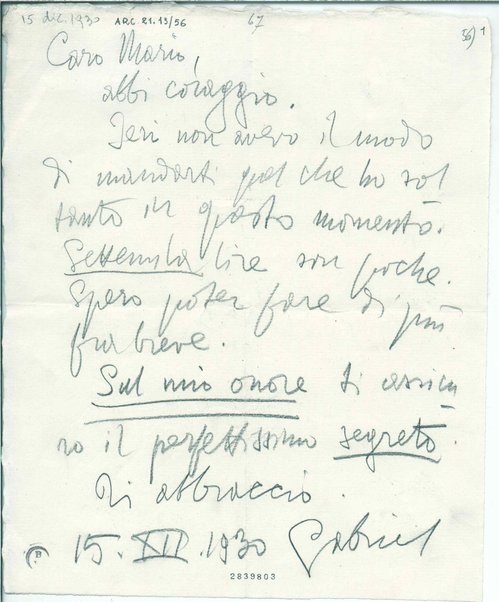 15 dic. 1930 ARC 21.13/56 67 56) 1
Caro Mario,
abbi coraggio.
Ieri non avevo il modo
di mandarti quel che ho sol
tanto in questo momento.
Settemila lire son poche.
Spero poter fare di più
fra breve.
Sul mio onore ti assicu
ro il perfettissimo segreto.
Ti abbraccio.
15. XII. 1930 Gabriel
B
2839803